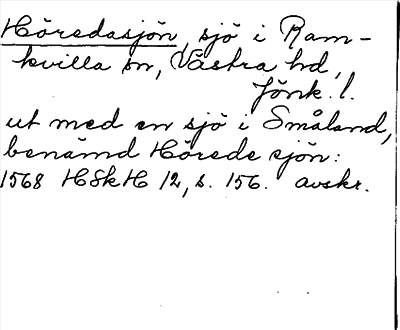 Höredasjön, sjö i Ram-
kvilla sn, Västra hd,
Jönk. l.
ut med en sjö i Småland,
benämd Hörede sjön:
1568 HSkH 12, s. 156. avskr.